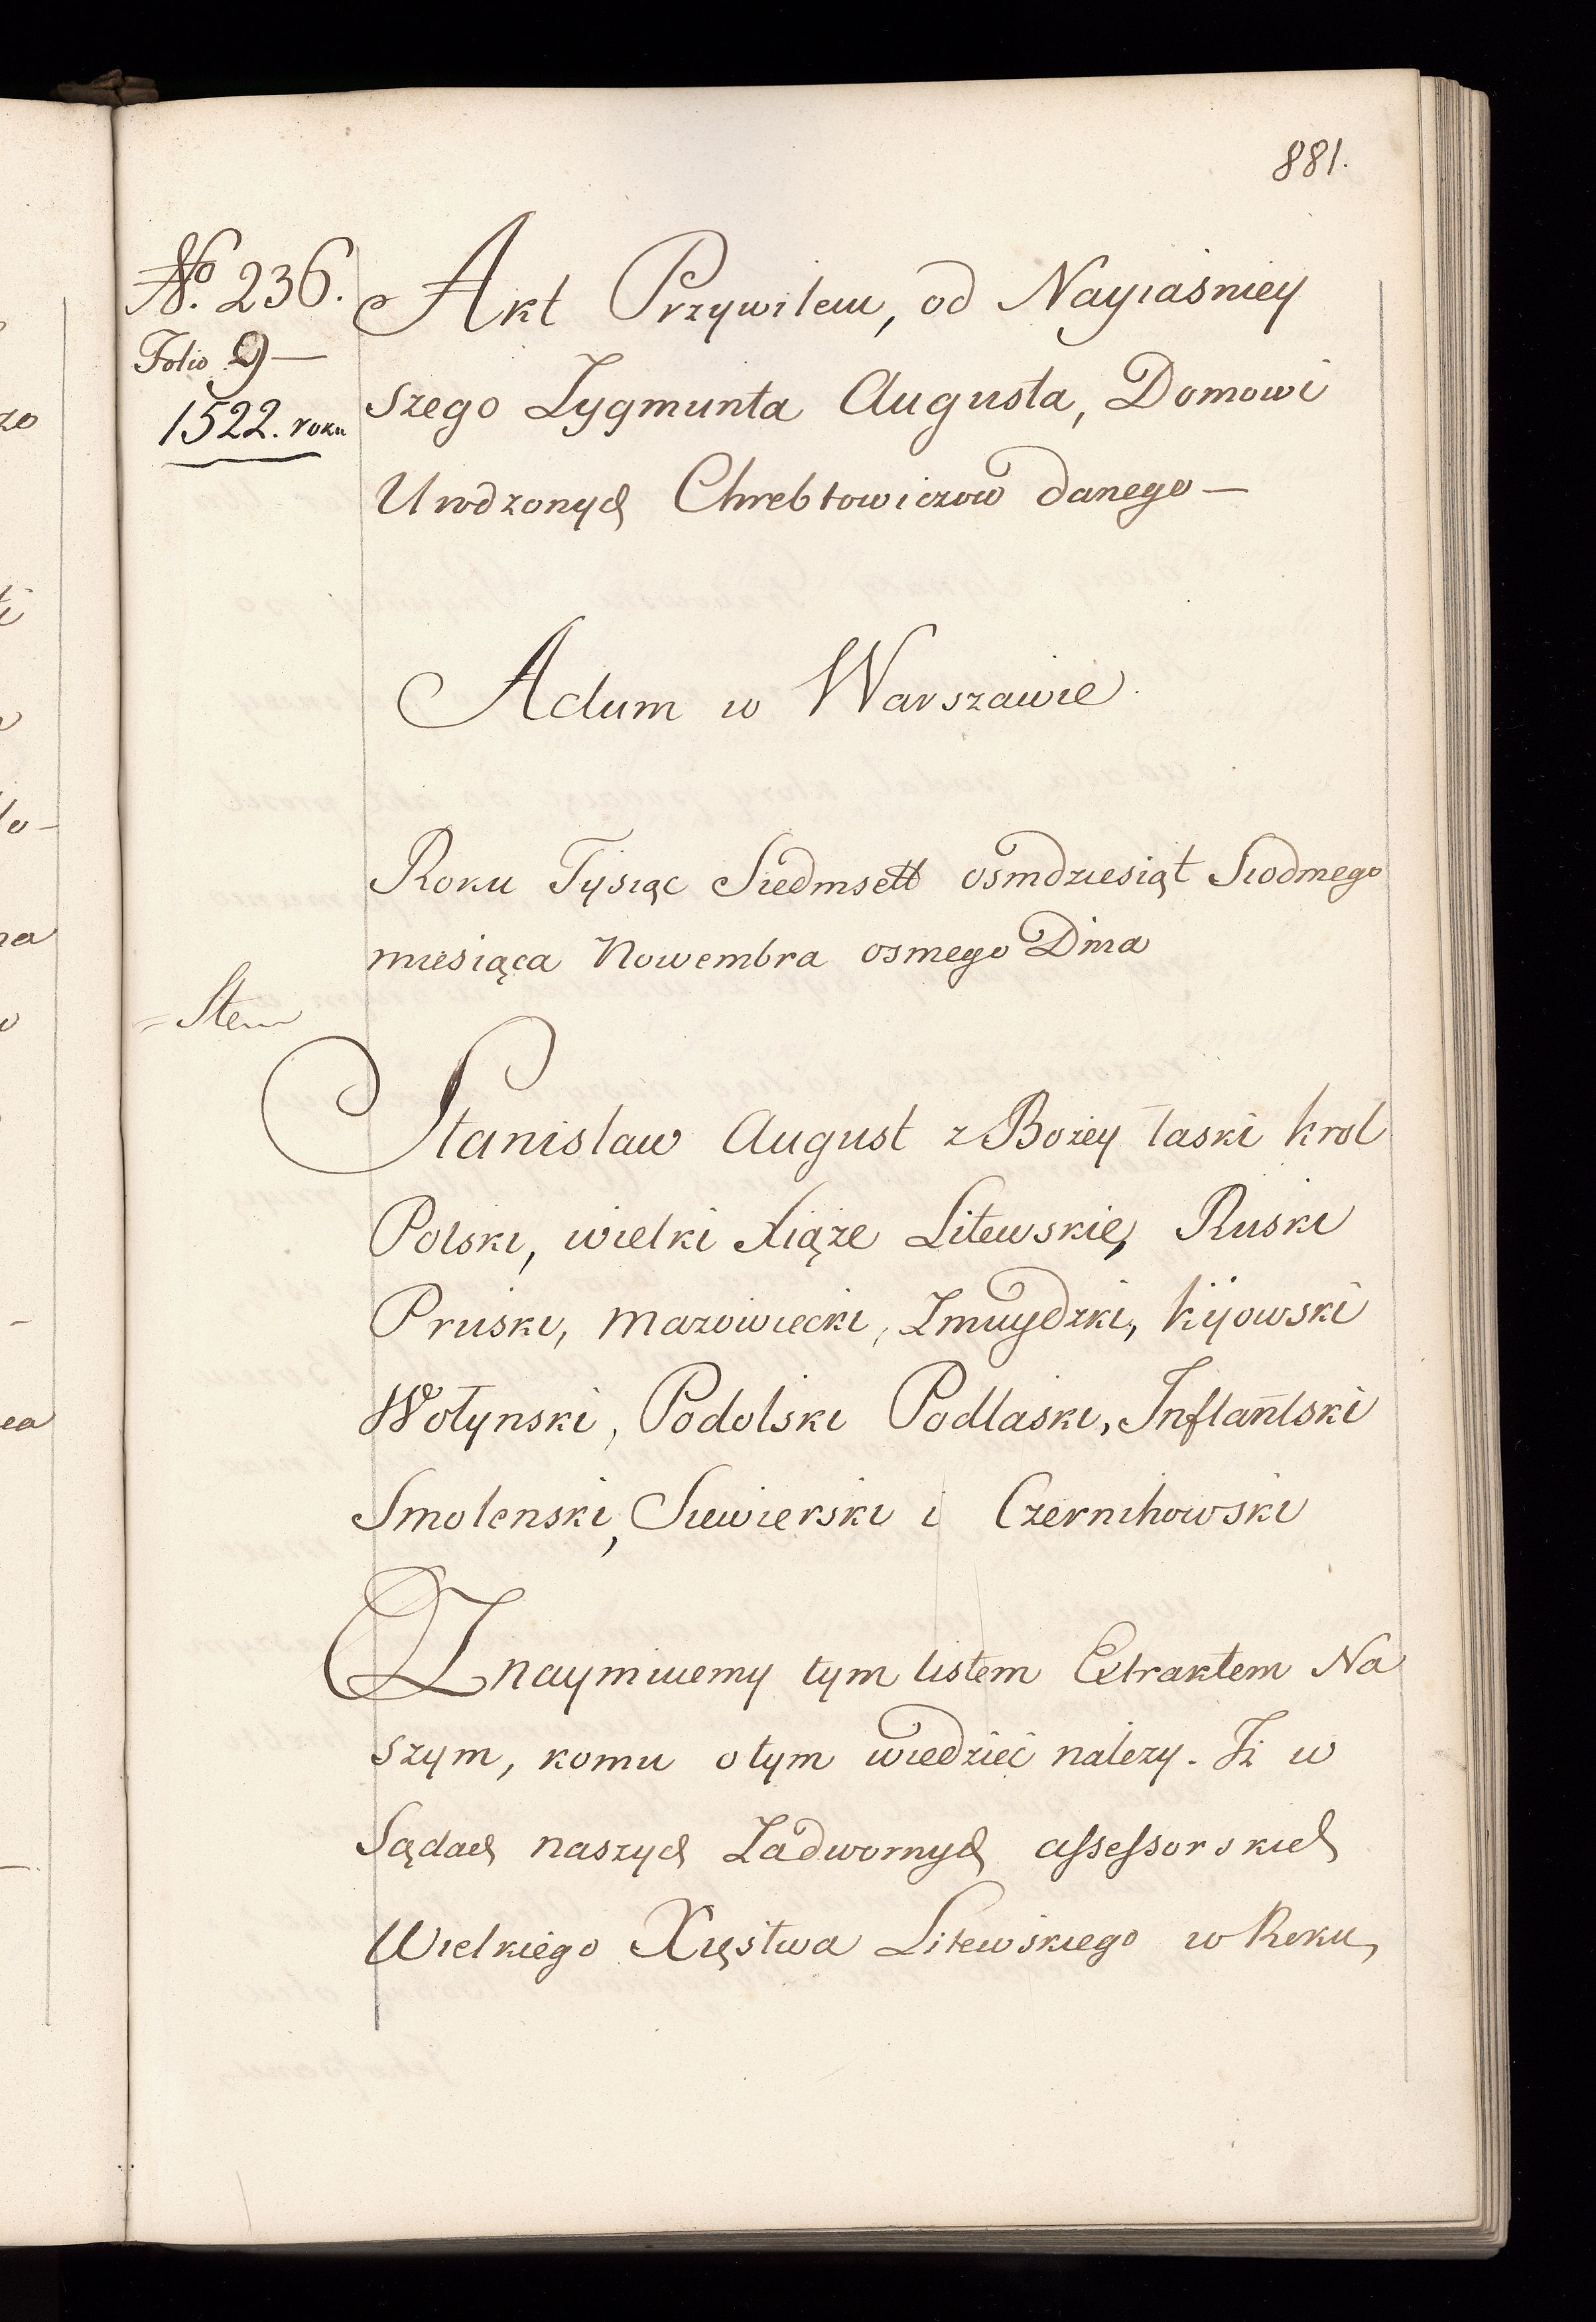 881.
No. 236.
Folio 9 —
1522. roku
Akt Przywileiu, od Nayiaśniey
szego Zygmunta Augusta, Domowi
Urodzonych Chrebtowiczow danego —
Actum w Warszawie
Roku Tysiąc Siedmsett osmdziesiąt Siodmego
miesiąca Nowembra osmego Dnia
Stanisław August z Bożey łaski krol
Polski, wielki Xiąże Litewskie, Ruski
Pruski, Mazowiecki, Zmuydzki, kijowski
Wołynski, Podolski Podlaski, Inflantski
Smolenski, Siewierski i Czernihowski
Oznaymiuemy tym listem Extraktem Na
szym, komu o tym wiedzieć należy. Iż w
Sądach naszych Zadwornych assessorskich
Wielkiego Xięstwa Litewskiego w Roku,